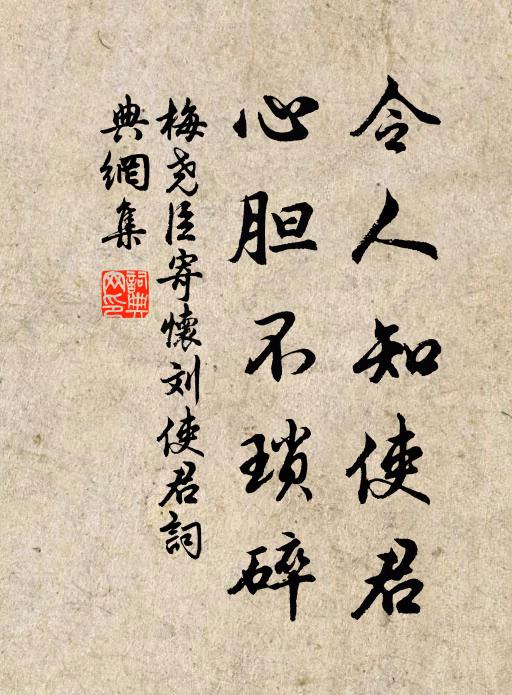 令人知使君
心胆不瑣碎
梅尧臣寄懷刘使君詞
典網集
詞典网印